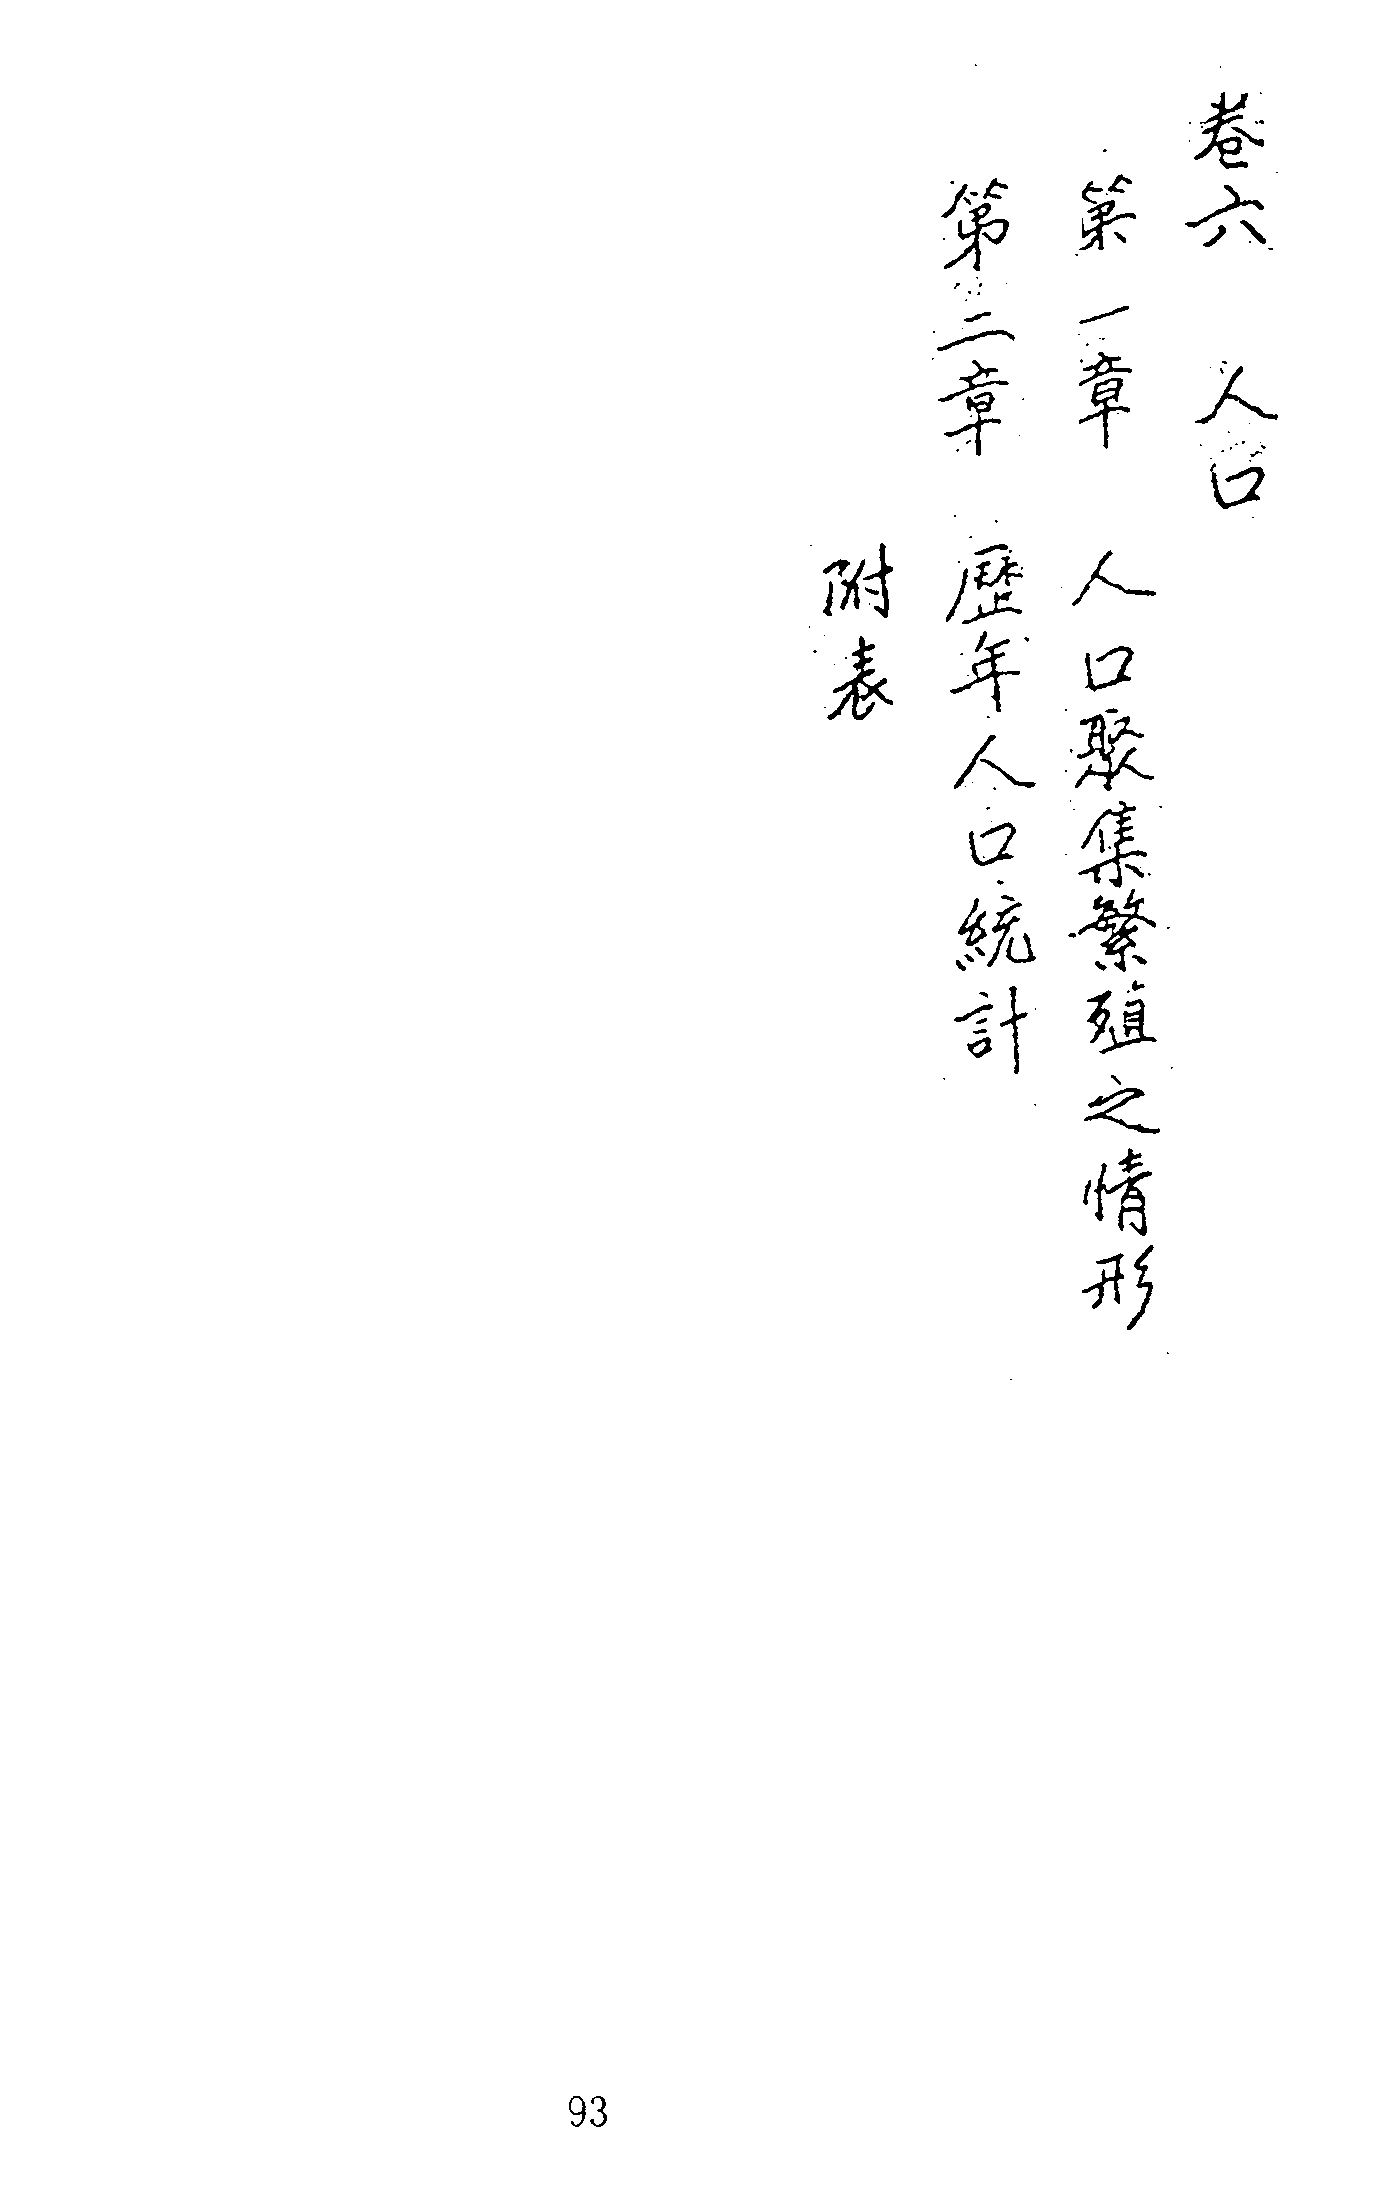 卷六　人口
第一章　人口聚集繁殖之情形
第二章　歷年人口統計
附表
93